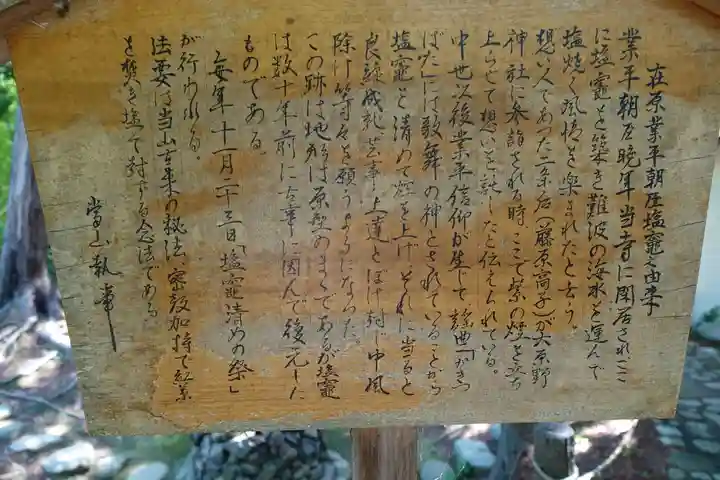 在原業平朝臣塩竈之由来
業平朝臣晩年当寺に閑居されここ
に塩竈を築き難波の海水を運んで
塩焼く風情を楽まれたと云う。
想い人であった二条后(藤原高子)が大原野
神社に参詣された時、ここで紫の煙を立ち
上らせて想いを託したと伝えられている。
中世以後業平信仰が生じて、謡曲「かきつ
ばた」には歌舞の神とされていることから
塩竈を清めて煙を上げ、それに当ると
良縁成就芸事上達とぼけ封じ中風
除け等々を願うようになった。
この跡は地形は原型のままであるが塩竈
は数十年前に古事に因んで復元した
ものである。
毎年十一月二十三日「塩竈清めの祭」
が行われる。
法要は当山古来の秘法、密教加持で紅葉
を焚き塩で封ずる念法である
当山執事